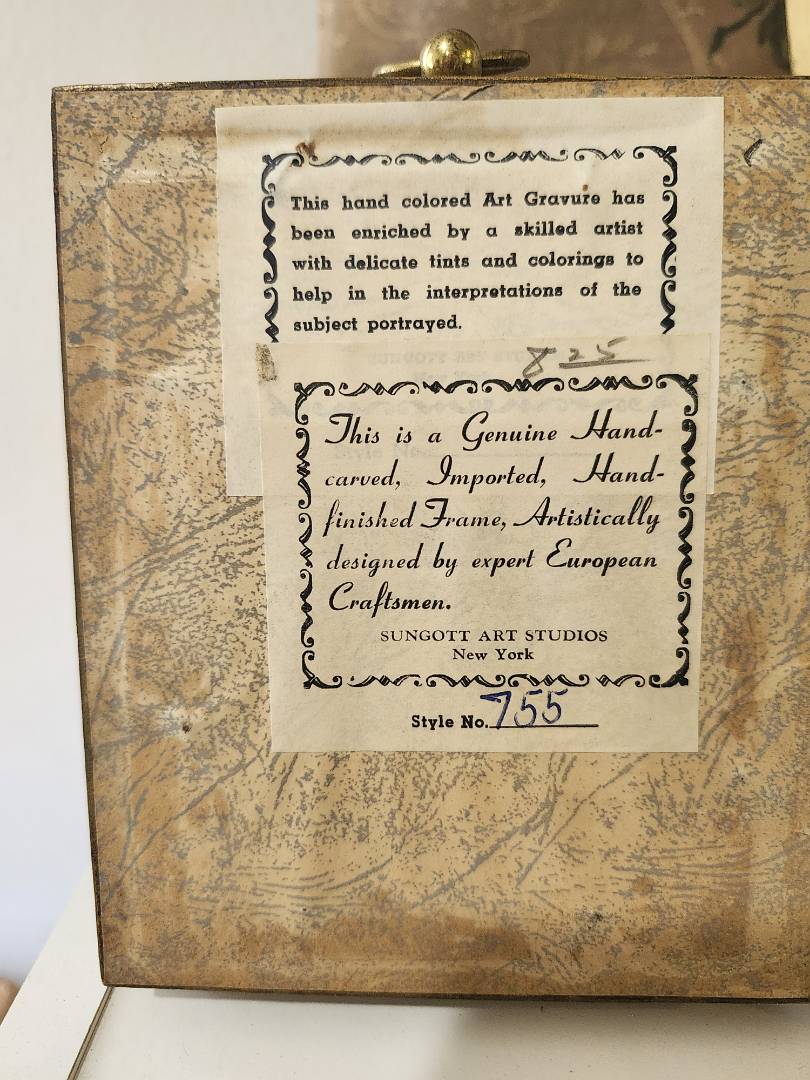 This hand colored Art Gravure has
been enriched by a skilled artist
with delicate tints and colorings to
help in the interpretations of the
subject portrayed.
8 25
This is a Genuine Hand-
carved, Imported, Hand-
finished Frame, Artistically
designed by expert European
Craftsmen.
SUNGOTT ART STUDIOS
New York
Style No. 755